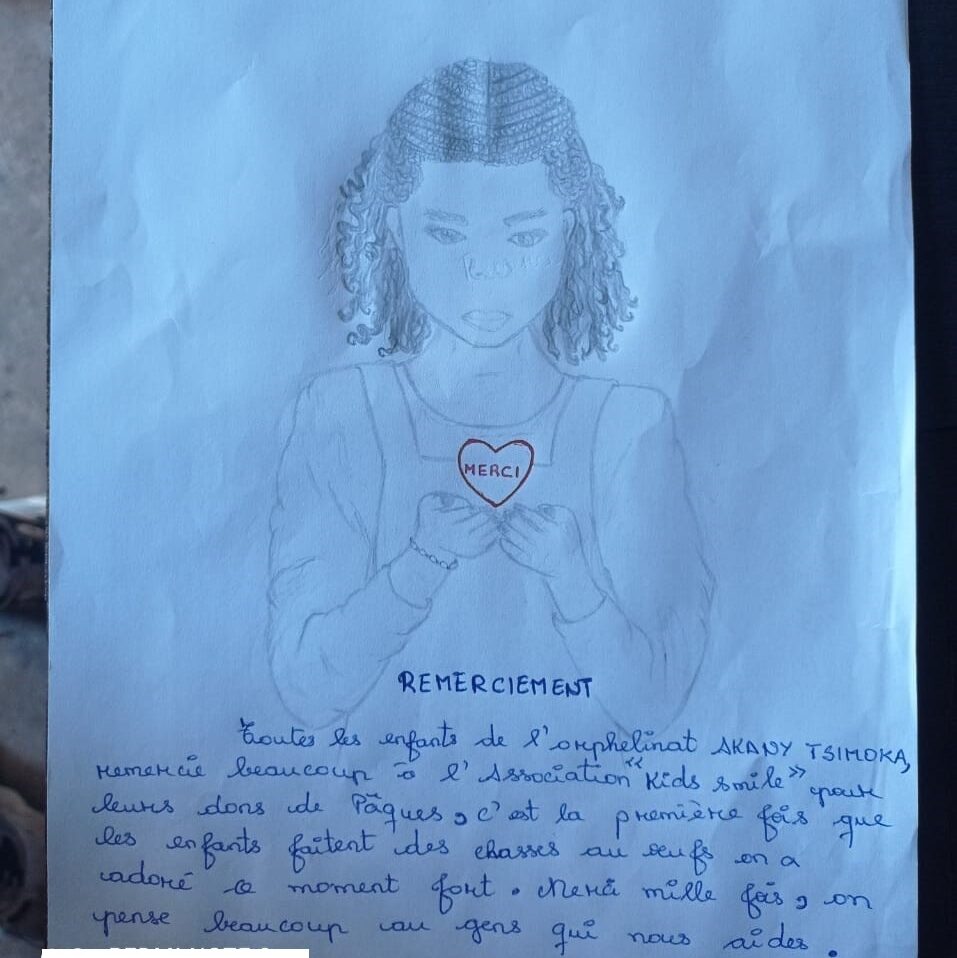 MERCI
REMERCIEMENT
Toutes les enfants de l'orphelinat AKANY TSIMOKA,
remercie beaucoup à l'Association "Kids smile" pour
leurs dons de Pâques, c'est la première fois que
les enfants faitent des chasses au œufs on a
adoré ce moment fort. Merci mille fois, on
pense beaucoup au gens qui nous aides.